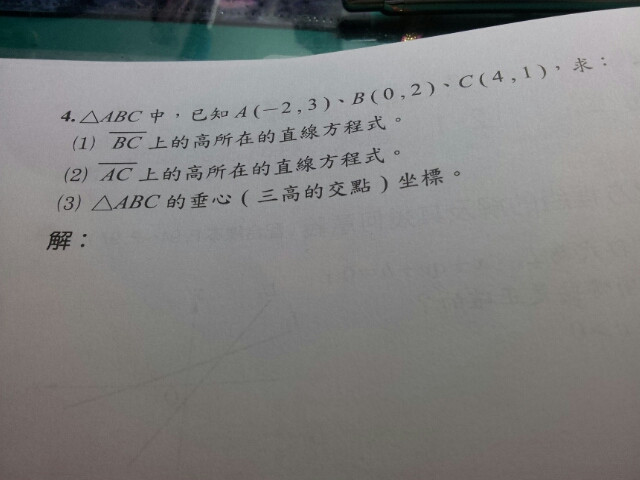 4. △ABC 中，已知 A(−2,3)、B(0,2)、C(4,1)，求：
(1) BC 上的高所在的直線方程式。
(2) AC 上的高所在的直線方程式。
(3) △ABC 的垂心(三高的交點)坐標。
解：